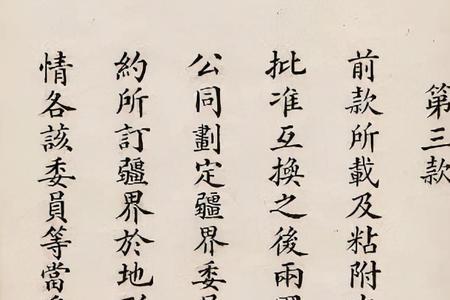 第三款
前款所載及粘附
批准互換之後兩
公同劃定疆界委
約所訂疆界於地
情各該委員等當